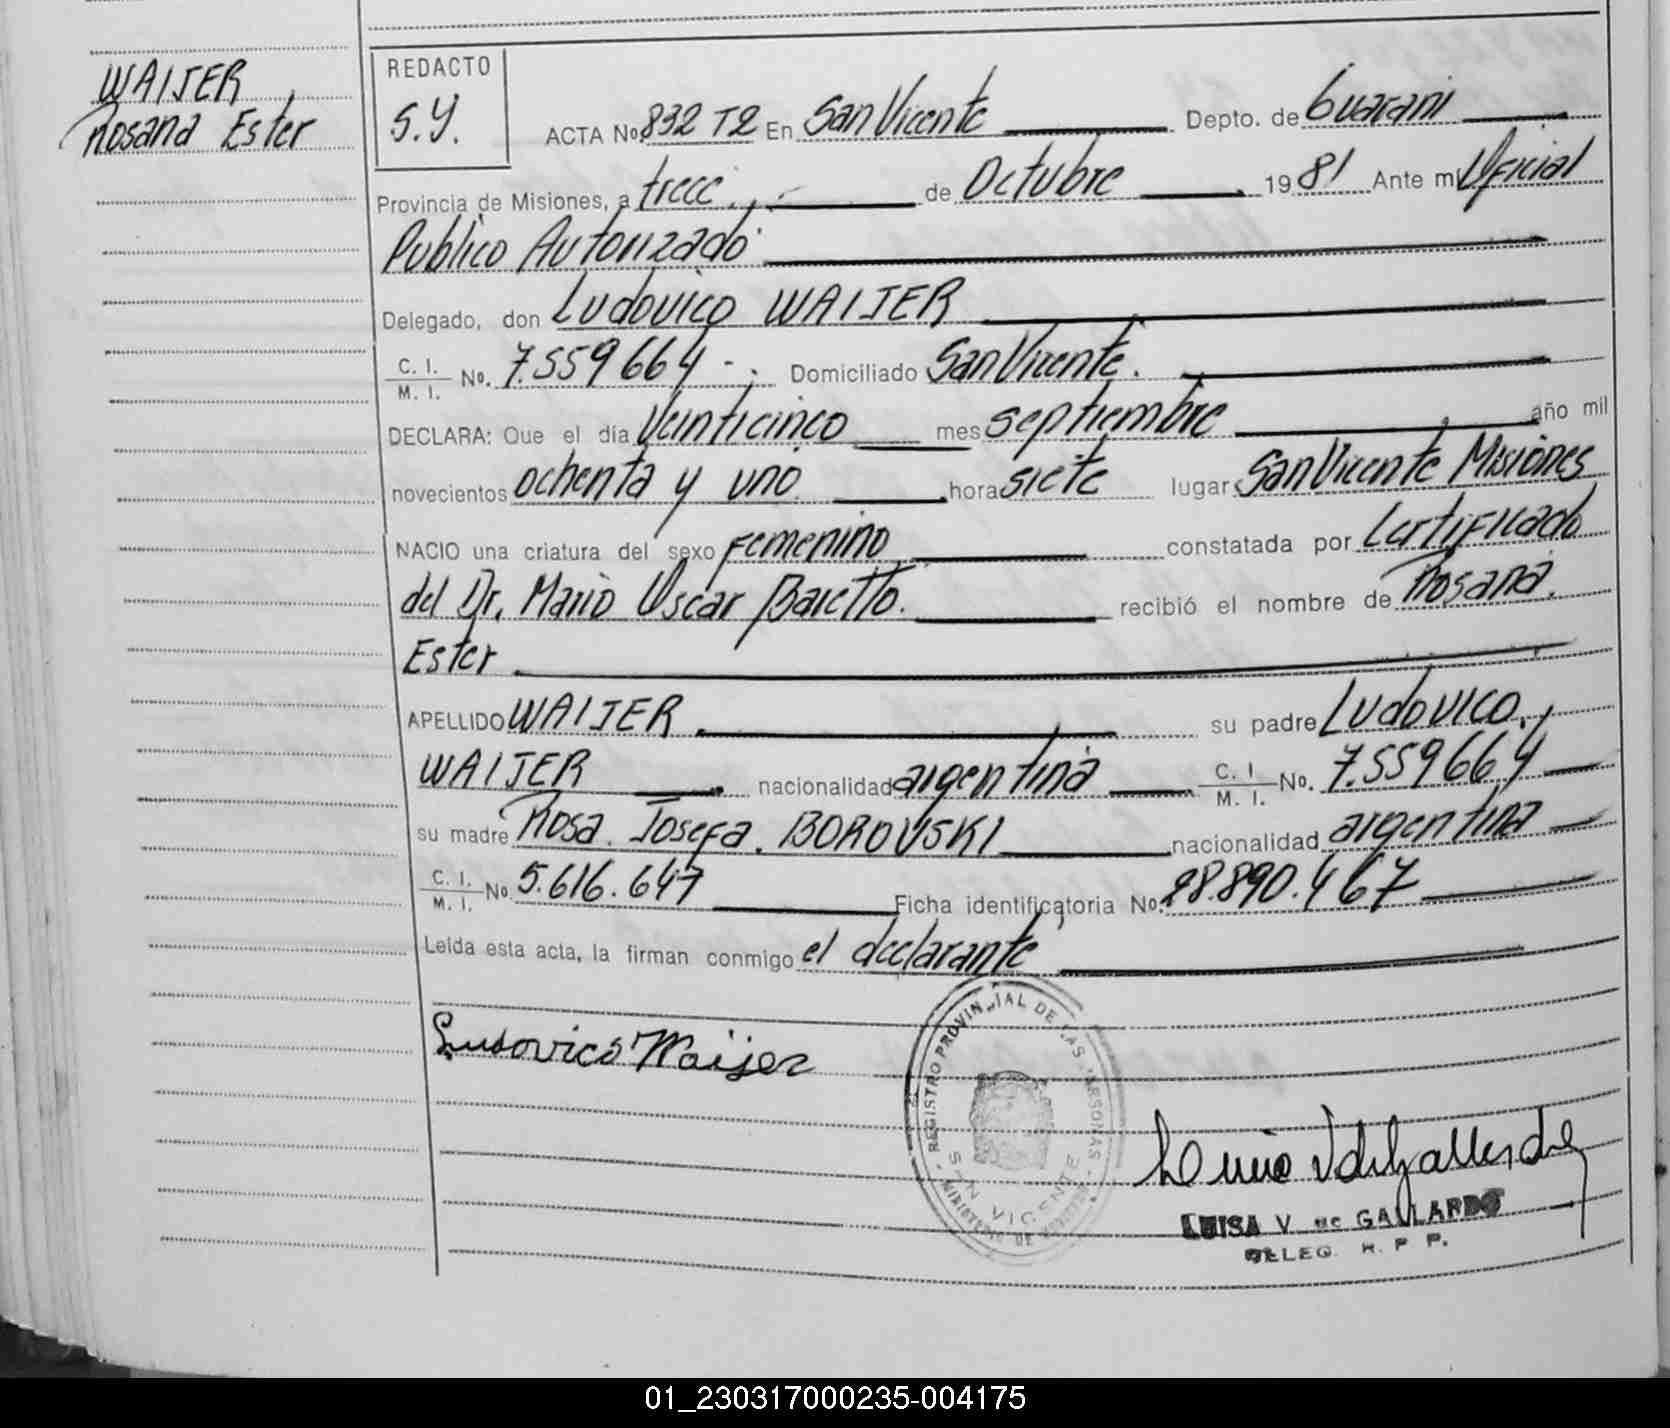 WAIJER
Rosana Ester
REDACTO
S.Y.
ACTA No 832 T2 En San Vicente Depto. de Guaraní
Provincia de Misiones, a trece de Octubre 1981 Ante mi Oficial
Publico Autorizado
Delegado, don Ludovico WAIJER
C. I. / M. I. No. 7.559664 - . Domiciliado San Vicente.
DECLARA: Que el día Veinticinco mes septiembre año mil
novecientos ochenta y uno hora siete lugar San Vicente Misiones
NACIO una criatura del sexo Femenino constatada por Certificado
del Dr. Mario Oscar Baretto. recibió el nombre de Rosana.
Ester
APELLIDO WAIJER su padre Ludovico.
WAIJER nacionalidad argentina C. I. / M. I. No. 7.559664
su madre Rosa Josefa. BOROVSKI nacionalidad argentina
C. I. / M. I. No. 5.616.647 Ficha identificatoria No. 28.890.467
Leída esta acta, la firman conmigo el declarante
Ludovico Waijer
REGISTRO PROVINCIAL DE LAS PERSONAS
SAN VICENTE
MINISTERIO DE
LUISA V. de GALLARDO
DELEG. R. P. P.
01_230317000235-004175